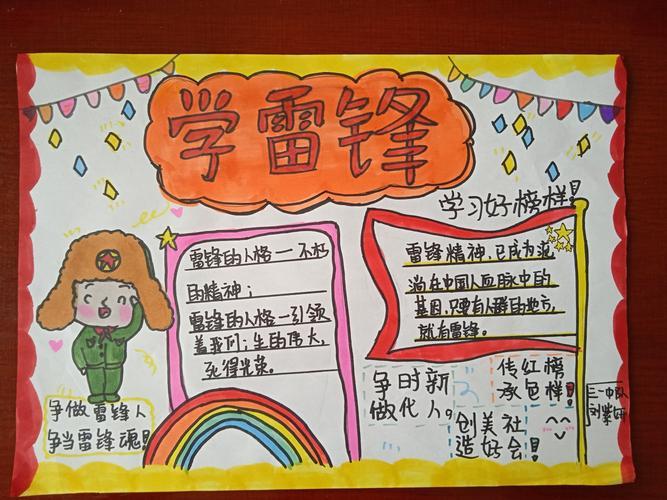 学雷锋
学习好榜样！
雷锋的人格一不朽
的精神；
雷锋的人格一引领
盖我们；生的伟大，
死得光荣。
雷锋精神，已成为流
淌在中国人血脉中的
基因，只要有人群的地方，
就有雷锋。
争做雷锋人
争当雷锋魂！
争时新
做代人。
传红榜
承色样！
创美社
造好会！
三一中队